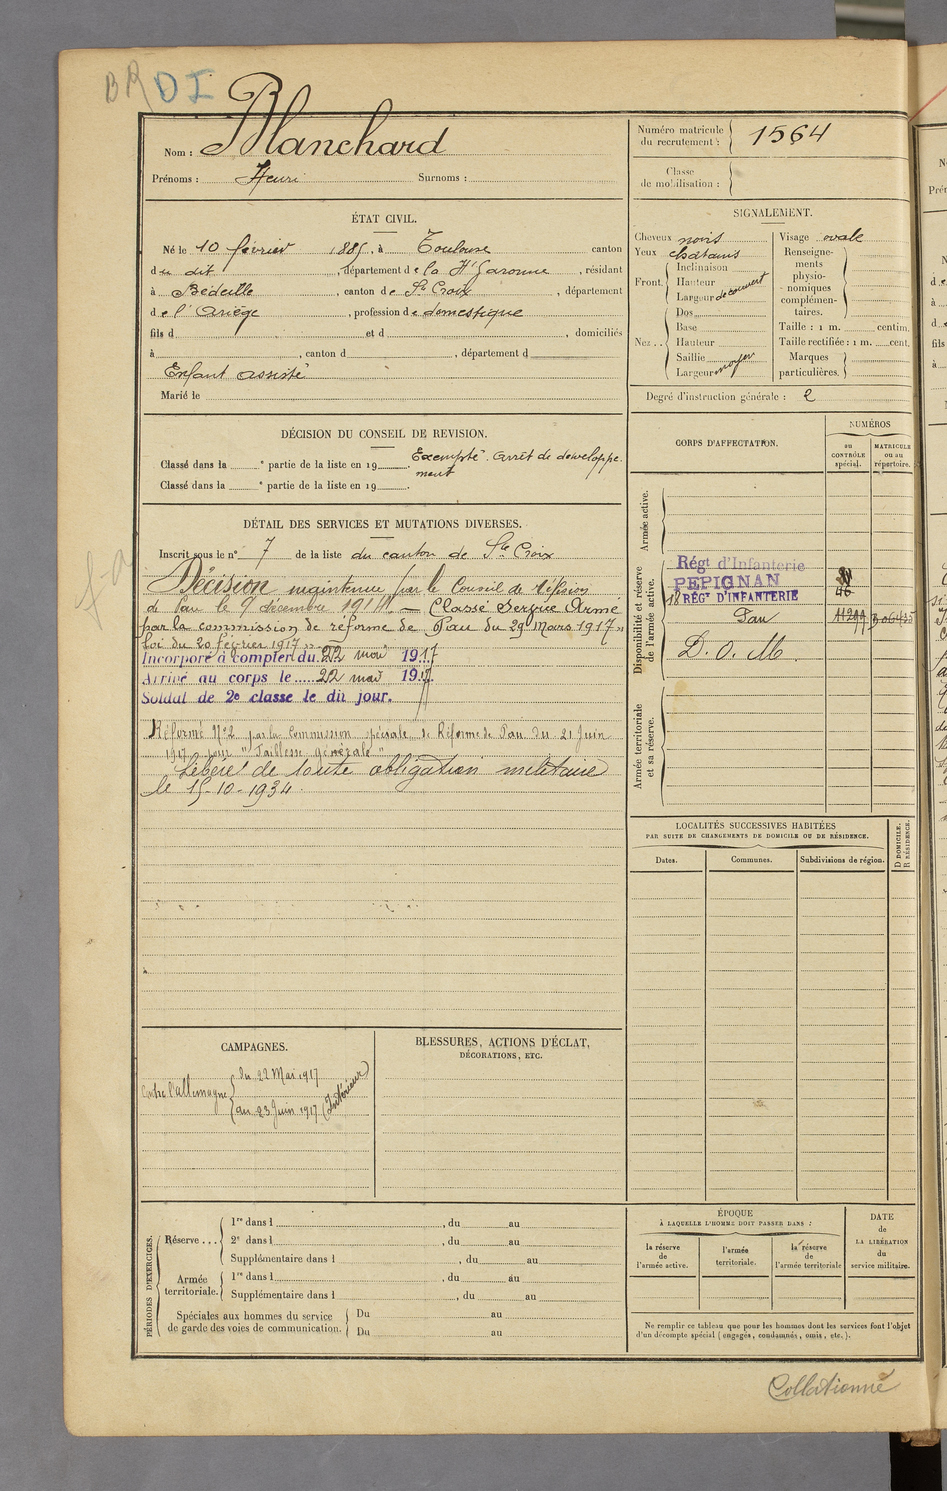 BR DI
Nom : Blanchard
Prénoms : Henri Surnoms :
ÉTAT CIVIL.
Né le 10 février 1885, à Toulouse canton
du dit, département de la Hte Garonne, résidant
à Bédeille, canton de Ste Croix, département
de l'Ariège, profession de domestique
fils d et d , domiciliés
à , canton d , département d
Enfant assisté
Marié le
DÉCISION DU CONSEIL DE REVISION.
Exempté. Arrêt de développe-
ment
Classé dans la e partie de la liste en 19 .
Classé dans la e partie de la liste en 19 .
DÉTAIL DES SERVICES ET MUTATIONS DIVERSES.
Inscrit sous le n° 7 de la liste du canton de Ste Croix
Décision maintenue par le Conseil de Révision
de Pau le 9 décembre 1914. — Classé Service Armé
par la commission de réforme de Pau du 29 Mars 1917 "
Loi du 20 février 1917 "
Incorporé à compter du 22 mai 1917
Arrivé au corps le..... 22 mai 1917.
Soldat de 2e classe le dit jour.
Réformé N°2 par la Commission spéciale de Réforme de Pau du 21 Juin
1917 pour "Faiblesse générale"
Libéré de toute obligation militaire
le 15-10-1934.
CAMPAGNES.
Contre l'allemagne
du 22 Mai 1917
au 23 Juin 1917 (Intérieur)
BLESSURES, ACTIONS D'ÉCLAT,
DÉCORATIONS, ETC.
PÉRIODES D'EXERCICES.
Réserve ...
1re dans l , du au
2e dans l , du au
Supplémentaire dans l , du au
Armée
territoriale.
1re dans l , du au
Supplémentaire dans l , du au
Spéciales aux hommes du service
de garde des voies de communication.
Du au
Du au
Numéro matricule
du recrutement : 1564
Classe
de mobilisation :
SIGNALEMENT.
Cheveux noirs
Yeux chatains
Front.
Inclinaison
Hauteur
Largeur découvert
Nez ..
Dos
Base
Hauteur
Saillie
Largeur moyen
Visage ovale
Renseigne-
ments
physio-
nomiques
complémen-
taires.
Taille : 1 m. centim.
Taille rectifiée : 1 m. cent.
Marques
particulières.
Degré d'instruction générale : 2
CORPS D'AFFECTATION.
NUMÉROS
au
CONTRÔLE
spécial.
MATRICULE
ou au
répertoire.
Armée active.
Disponibilité et réserve
de l'armée active.
Régt d'Infanterie
PEPIGNAN
18 RÉGT D'INFANTERIE
46
Pau 11299
D. O. M.
Armée territoriale
et sa réserve.
LOCALITÉS SUCCESSIVES HABITÉES
PAR SUITE DE CHANGEMENTS DE DOMICILE OU DE RÉSIDENCE.
Dates. Communes. Subdivisions de région.
D DOMICILE.
R RÉSIDENCE.
ÉPOQUE
À LAQUELLE L'HOMME DOIT PASSER DANS :
la réserve
de
l'armée active.
l'armée
territoriale.
la réserve
de
l'armée territoriale
DATE
de
LA LIBÉRATION
du
service militaire.
Ne remplir ce tableau que pour les hommes dont les services font l'objet
d'un décompte spécial (engagés, condamnés, omis, etc.).
Collationné